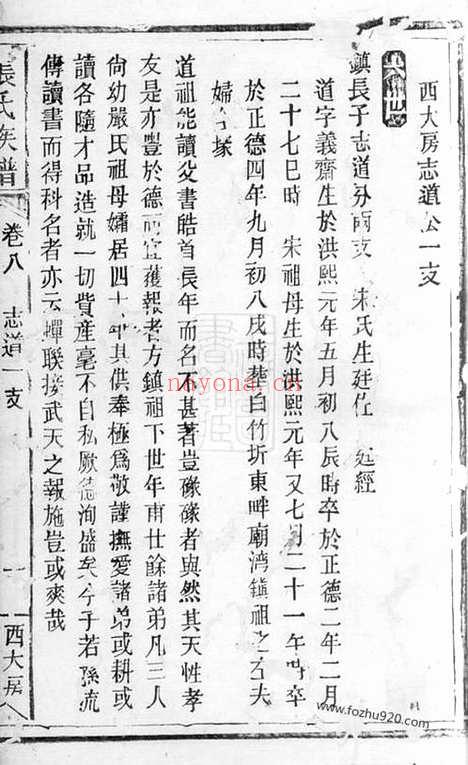 西大房志道公一支
六世
鎮長子志道分兩支 宋氏生廷佐 廷經
道字義齋生於洪熙元年五月初八辰時卒於正德二年二月
二十七巳時 宋祖母生於洪熙元年又七月二十一午時卒
於正德四年九月初八戌時葬白竹坼東畔廟灣鎮祖之右夫
婦合塚
道祖能讀父書皓首長年而名不甚著豈碌碌者與然其天性孝
友是亦豐於德而宜獲報者方鎮祖下世年甫廿餘諸弟凡三人
尚幼嚴氏祖母孀居四十年其供奉極為敬謹撫愛諸弟或耕或
讀各隨才品造就一切貲產毫不自私厥德洵盛矣今子若孫流
傳讀書而得科名者亦云蟬聯接武天之報施豈或爽哉
張氏族譜
卷八 志道一支
一
西大房
nayona.cn
www.fozhu920.com